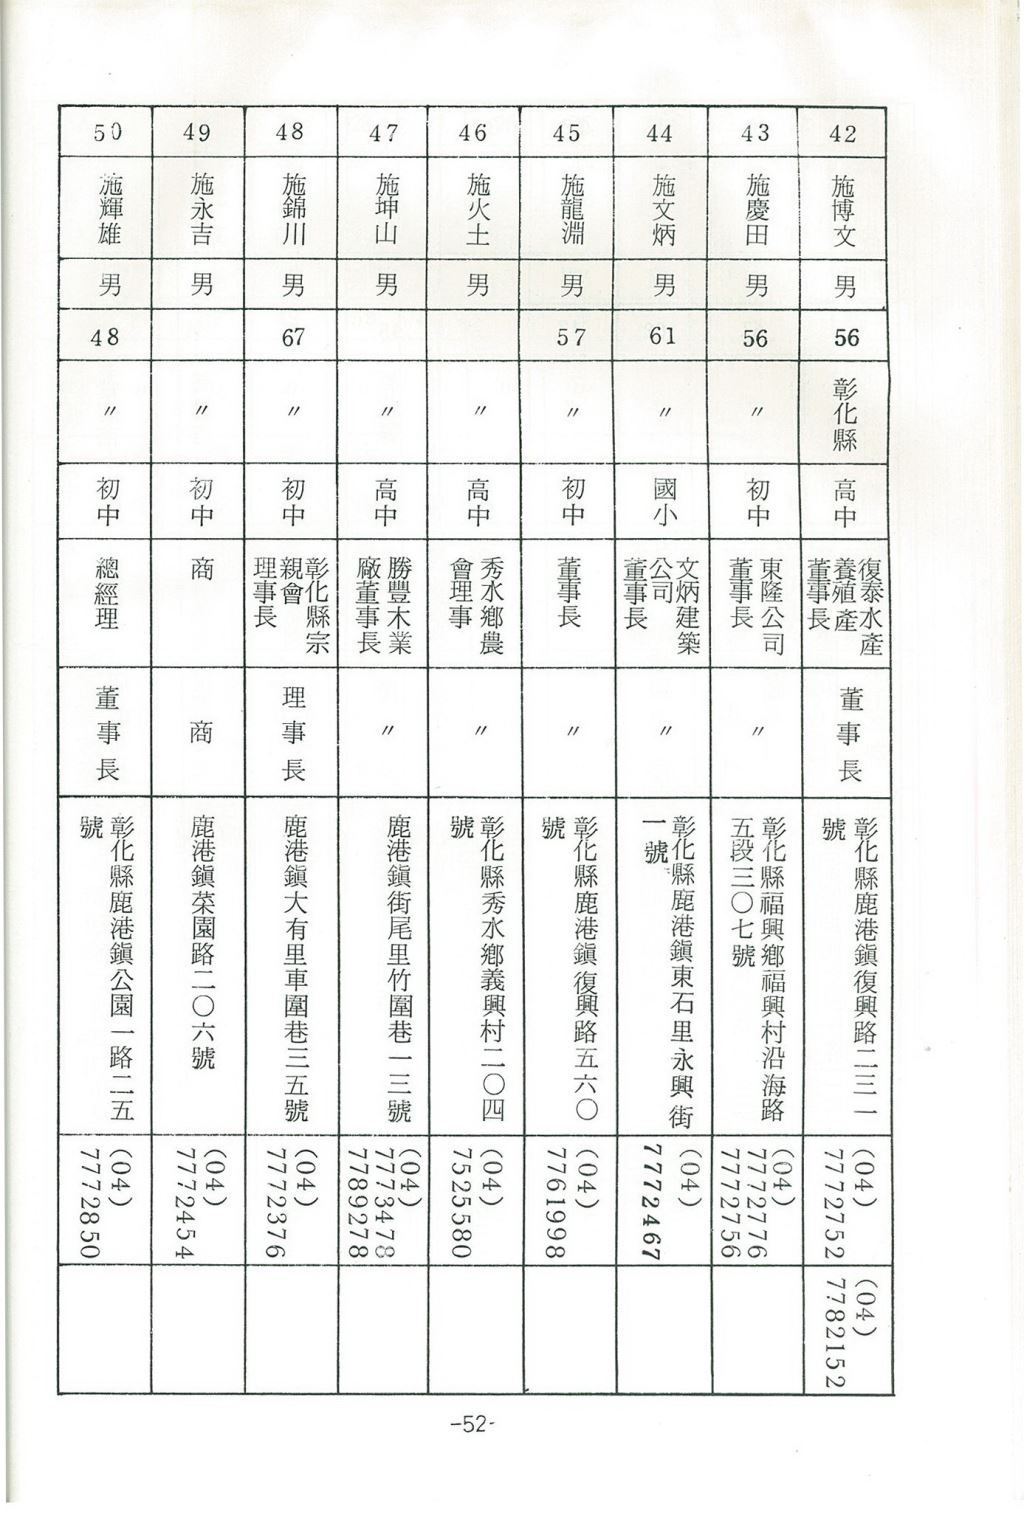 42
施博文
男
56
彰化縣
高中
復泰水產
養殖產
董事長
董事長
彰化縣鹿港鎮復興路二三一
號
(04)
7772752
(04)
7782152
43
施慶田
男
56
〃
初中
東隆公司
董事長
〃
彰化縣福興鄉福興村沿海路
五段三〇七號
(04)
7772776
7772756
44
施文炳
男
61
〃
國小
文炳建築
公司
董事長
〃
彰化縣鹿港鎮東石里永興街
一號
(04)
7772467
45
施龍淵
男
57
〃
初中
董事長
〃
彰化縣鹿港鎮復興路五六〇
號
(04)
7761998
46
施火土
男
〃
高中
秀水鄉農
會理事
〃
彰化縣秀水鄉義興村二〇四
號
(04)
7525580
47
施坤山
男
〃
高中
勝豐木業
廠董事長
〃
鹿港鎮街尾里竹圍巷一三號
(04)
7773478
7789278
48
施錦川
男
67
〃
初中
彰化縣宗
親會
理事長
理事長
鹿港鎮大有里車圍巷三五號
(04)
7772376
49
施永吉
男
〃
初中
商
商
鹿港鎮菜園路二〇六號
(04)
7772454
50
施輝雄
男
48
〃
初中
總經理
董事長
彰化縣鹿港鎮公園一路二五
號
(04)
7772850
-52-